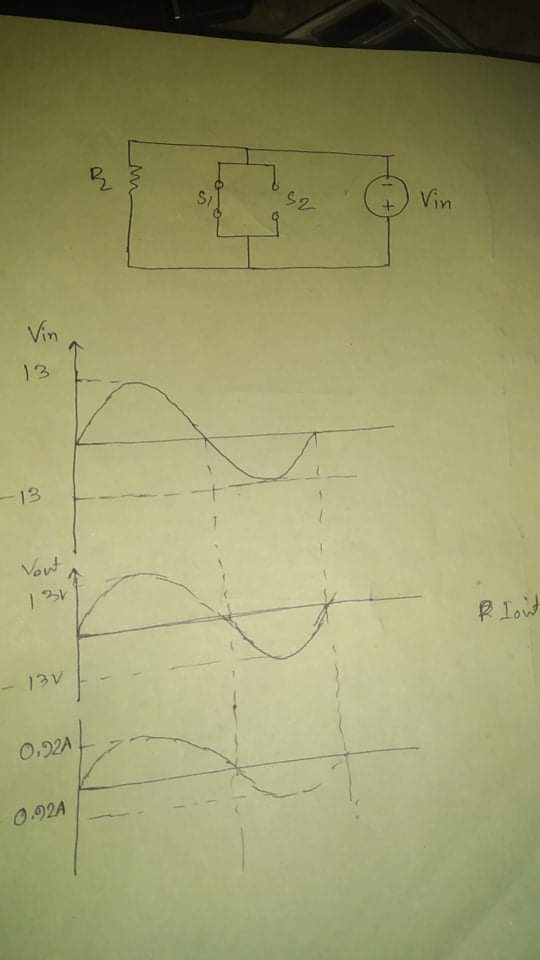 R2
S1
S2
- +
Vin
Vin
13
-13
Vout
13V
- 13V
R Iout
0.92A
0.92A